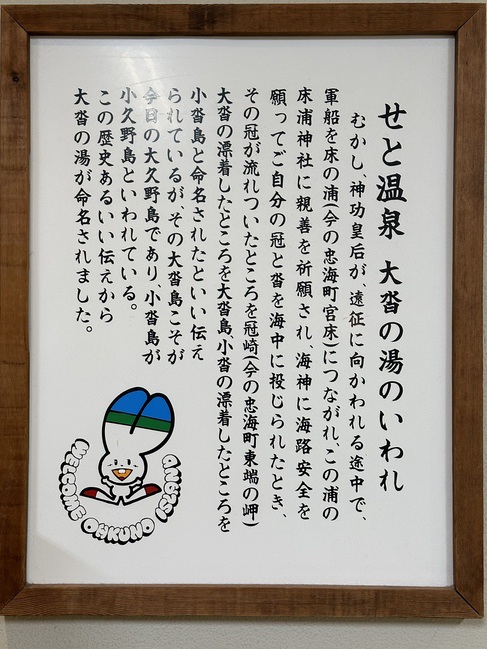 せと温泉 大沓の湯のいわれ
むかし、神功皇后が、遠征に向かわれる途中で、
軍船を床の浦(今の忠海町宮床)につながれ、この浦の
床浦神社に親善を祈願され、海神に海路安全を
願ってご自分の冠と沓を海中に投じられたとき、
その冠が流れついたところを冠崎(今の忠海町東端の岬)
大沓の漂着したところを大沓島、小沓の漂着したところを
小沓島と命名されたといい伝え
られているが、その大沓島こそが
今日の大久野島であり、小沓島が
小久野島といわれている。
この歴史あるいい伝えから
大沓の湯が命名されました。
WELCOME OHKUNO ISLAND